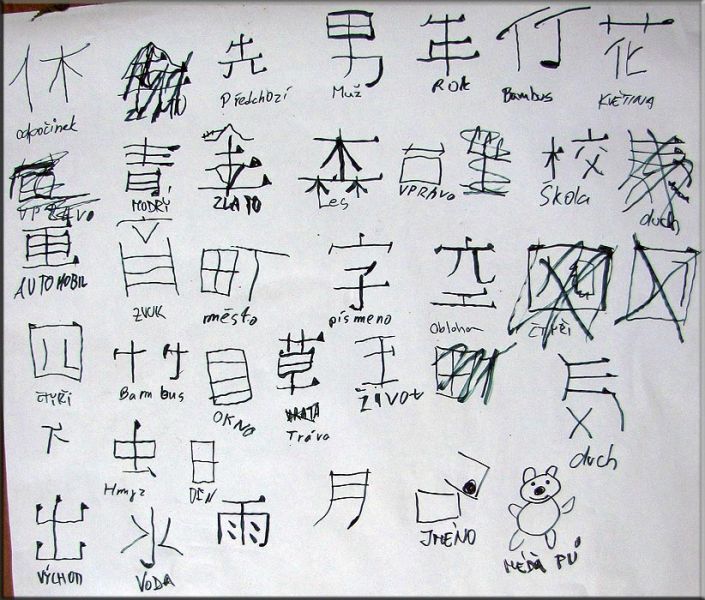 休 先 男 年 花
odpočinek Předchozí Muž Rok Bambus KVĚTINA
青 金 森 校
VPRAVO MODRÝ ZLATO Les VPRAVO Škola duch
車 音 町 字 空
AUTOMOBIL ZVUK město písmeno Obloha ČTYŘI
四 竹 目 草
ČTYŘI Bambus OKNO Tráva ŽIVOT duch
下 虫 日
Hmyz DEN
出 水 雨 月
VÝCHOD VODA JMÉNO MÉĎA PÚ